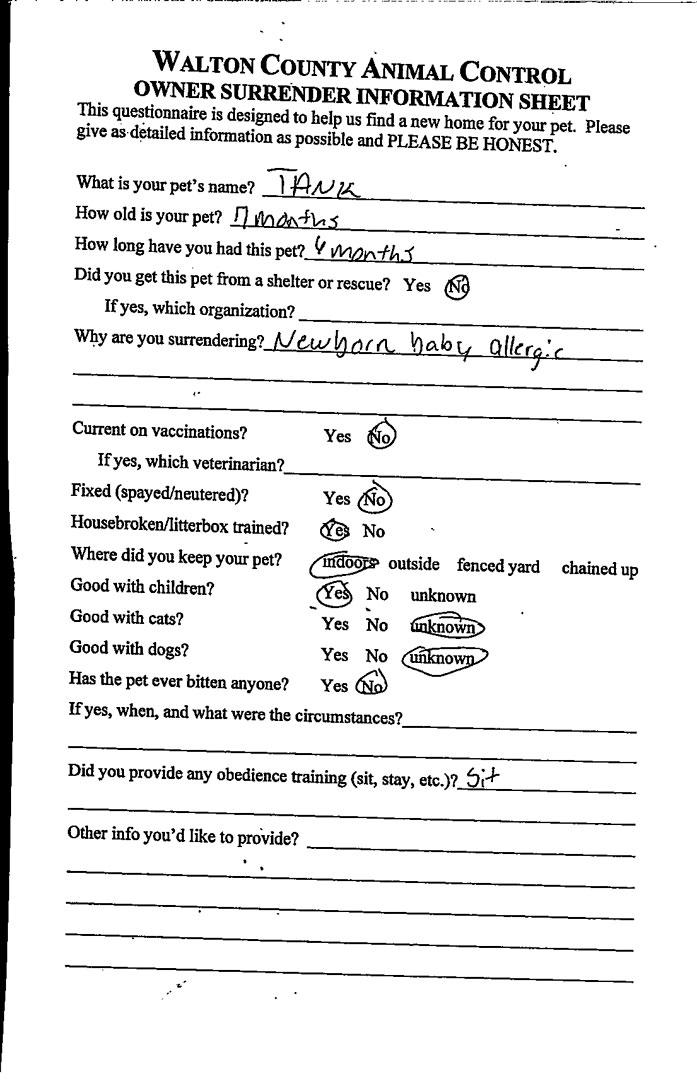 WALTON COUNTY ANIMAL CONTROL
OWNER SURRENDER INFORMATION SHEET
This questionnaire is designed to help us find a new home for your pet. Please
give as detailed information as possible and PLEASE BE HONEST.
What is your pet's name? TANK
How old is your pet? 7 months
How long have you had this pet? 4 months
Did you get this pet from a shelter or rescue? Yes No
If yes, which organization?
Why are you surrendering? Newborn baby allergic
Current on vaccinations? Yes No
If yes, which veterinarian?
Fixed (spayed/neutered)? Yes No
Housebroken/litterbox trained? Yes No
Where did you keep your pet? indoors outside fenced yard chained up
Good with children? Yes No unknown
Good with cats? Yes No unknown
Good with dogs? Yes No unknown
Has the pet ever bitten anyone? Yes No
If yes, when, and what were the circumstances?
Did you provide any obedience training (sit, stay, etc.)? Sit
Other info you'd like to provide?